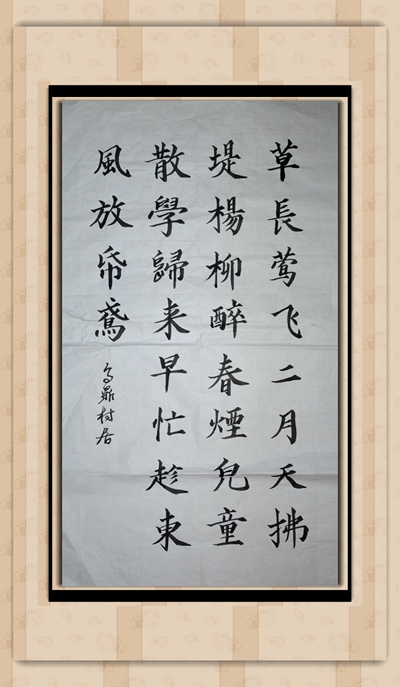 草長莺飞二月天拂
堤楊柳醉春煙兒童
散學歸来早忙趁東
風放帋鳶
高鼎村居